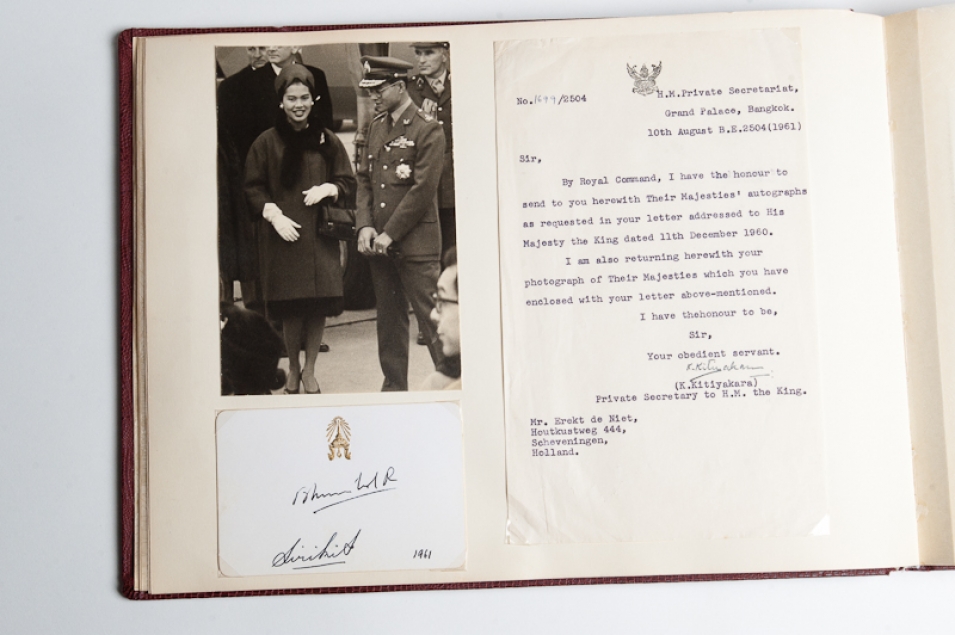 No. 1699/2504
H.M.Private Secretariat,
Grand Palace, Bangkok.
10th August B.E.2504(1961)
Sir,
By Royal Command, I have the honour to
send to you herewith Their Majesties' autographs
as requested in your letter addressed to His
Majesty the King dated 11th December 1960.
I am also returning herewith your
photograph of Their Majesties which you have
enclosed with your letter above-mentioned.
I have thehonour to be,
Sir,
Your obedient servant.
K.Kitiyakara
(K.Kitiyakara)
Private Secretary to H.M. the King.
Mr. Erekt de Niet,
Houtkustweg 444,
Scheveningen,
Holland.
Bhumibol R
Sirikit
1961